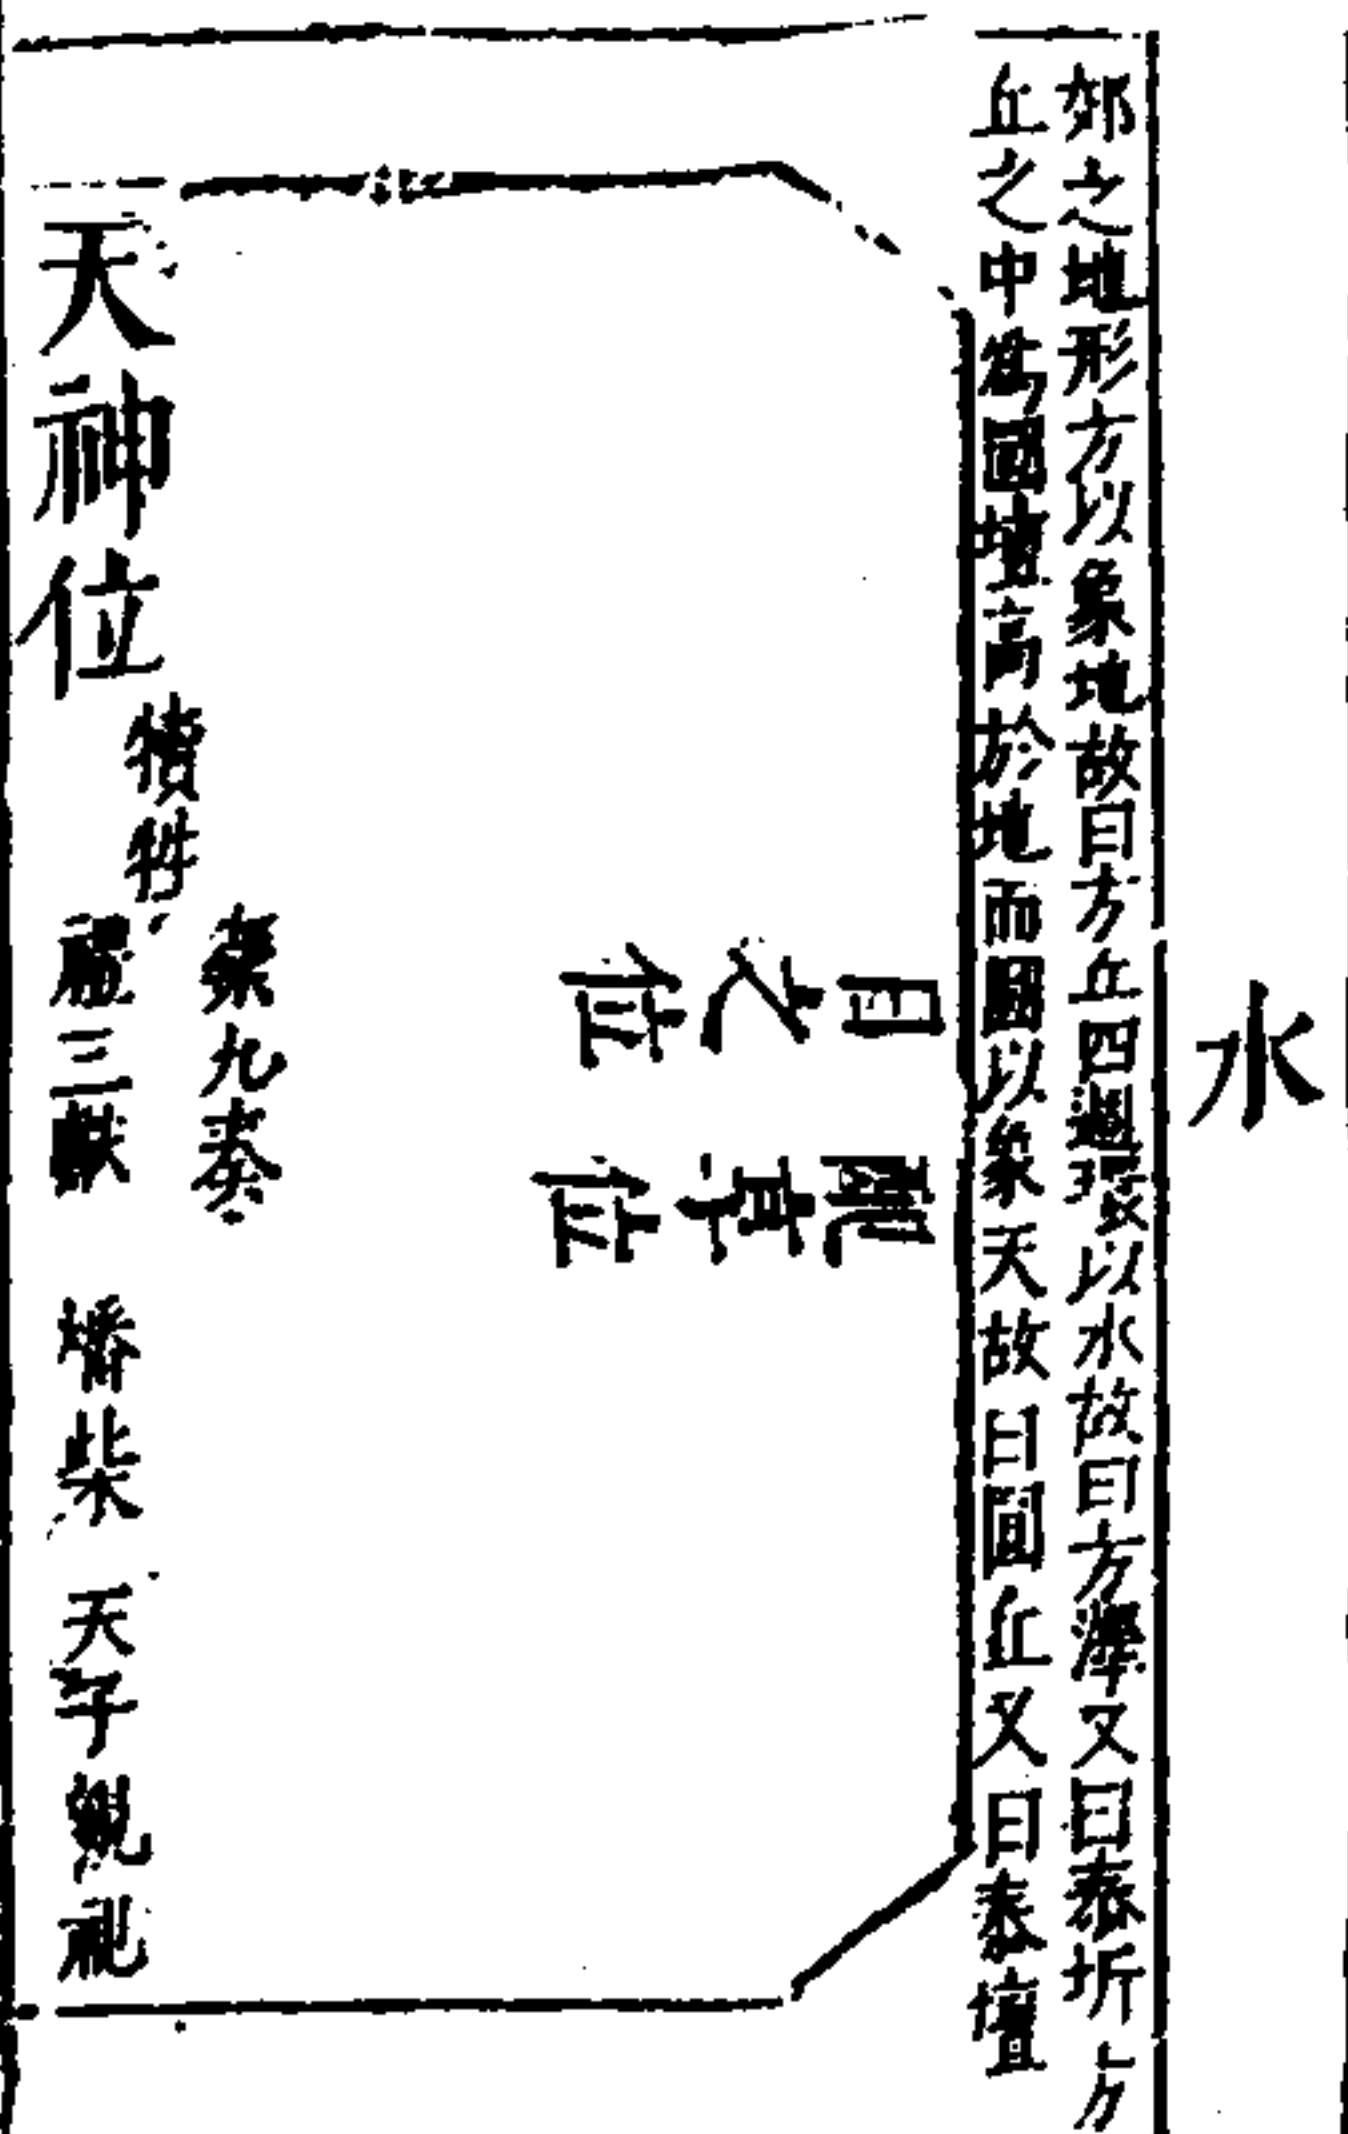 水
郊之地形方以象地故曰方丘四週環以水故曰方澤又曰泰折方
丘之中為圜壇高於地而圜以象天故曰圜丘又曰泰壇
日之位
位
天神位
犢牲
樂九奏
禮三獻
燔柴
天子親祀